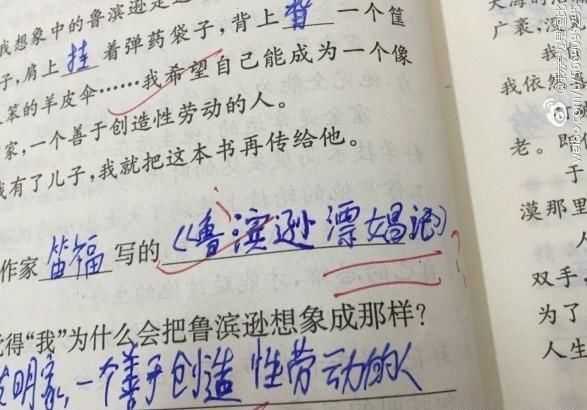 我想象中的鲁滨逊是
子,肩上挂着弹药袋子,背上背一个筐
笨的羊皮伞……我希望自己能成为一个像
家,一个善于创造性劳动的人。
我有了儿子,我就把这本书再传给他。
作家笛福写的《鲁滨逊漂娼记》
觉得“我”为什么会把鲁滨逊想象成那样?
发明家,一个善于创造性劳动的人
大海的
广袤,
我
我依然
老。即
于
漠那里
双手,
为了
人生